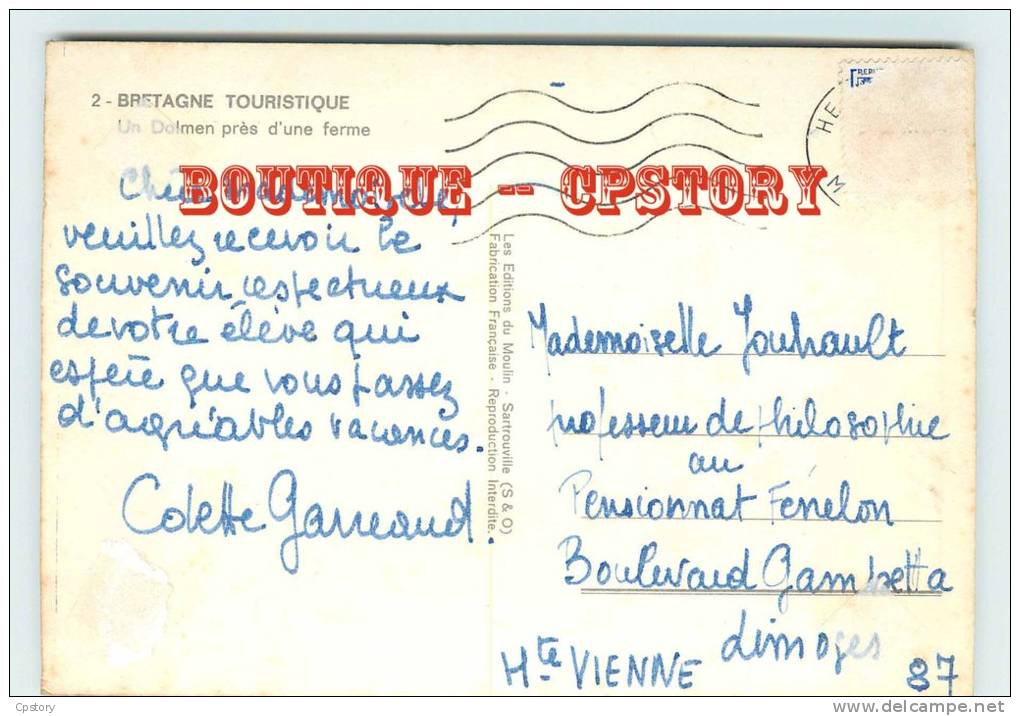 2 - BRETAGNE TOURISTIQUE
Un Dolmen près d'une ferme
BOUTIQUE -- CPSTORY
Chère Mademoiselle,
veuillez recevoir le
souvenir respectueux
de votre élève qui
espère que vous passez
d'agréables vacances.
Colette
Les Editions du Moulin - Sartrouville (S & O)
Fabrication Française - Reproduction Interdite.
Mademoiselle Jouhault
professeur de philosophie
au
Pensionnat Fénelon
Boulevard Gambetta
Limoges
Hte VIENNE 87
Cpstory
delcampe.net